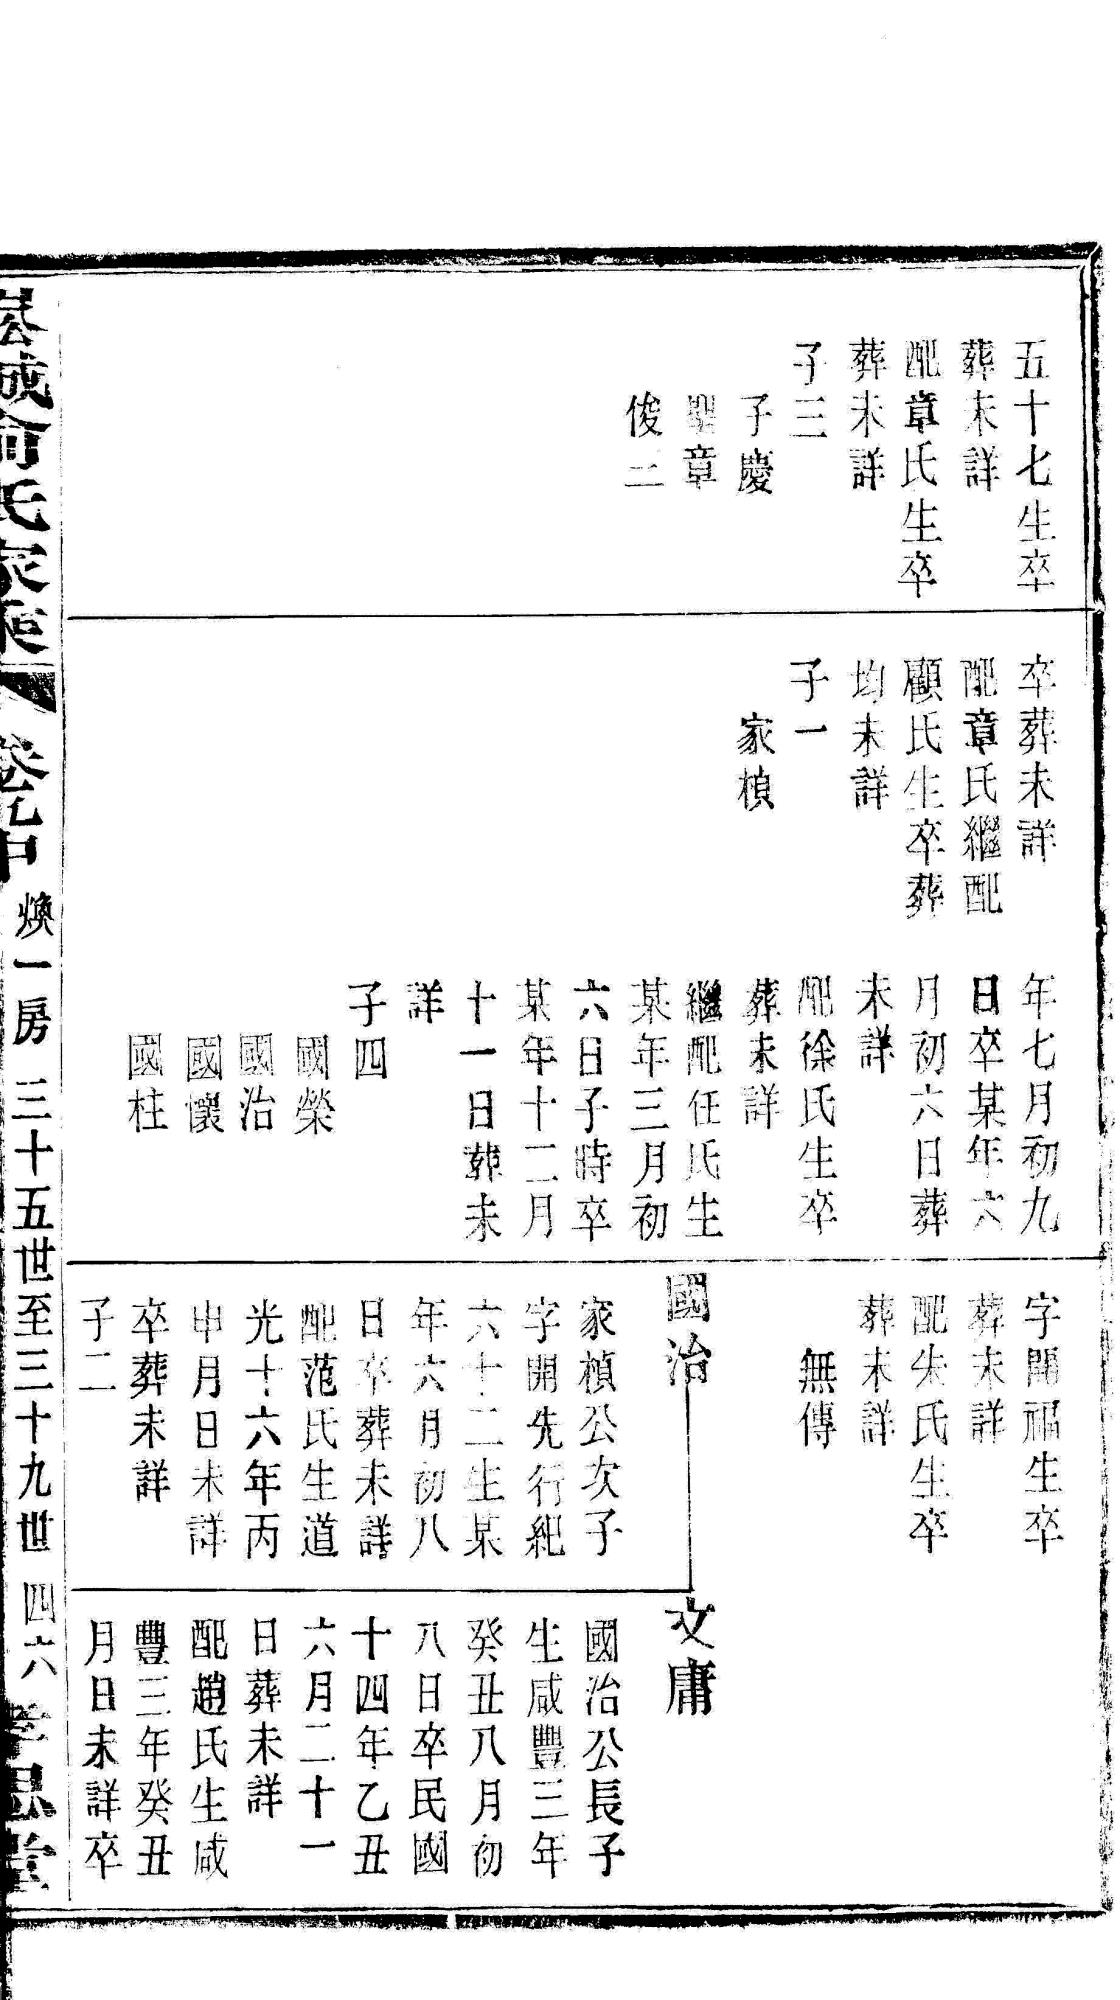 五十七生卒
葬未詳
配章氏生卒
葬未詳
子三
子慶
章
俊三
卒葬未詳
配章氏繼配
顧氏生卒葬
均未詳
子一
家楨
年七月初九
日卒某年六
月初六日葬
未詳
配徐氏生卒
葬未詳
繼配任氏生
某年三月初
六日子時卒
某年十二月
十一日葬未
詳
子四
國榮
國治
國懷
國柱
字開福生卒
葬未詳
配朱氏生卒
葬未詳
無傳
國治
家楨公次子
字開先行紀
六十二生某
年六月初八
日卒葬未詳
配范氏生道
光十六年丙
申月日未詳
卒葬未詳
子二
文庸
國治公長子
生咸豐三年
癸丑八月初
八日卒民國
十四年乙丑
六月二十一
日葬未詳
配趙氏生咸
豐三年癸丑
月日未詳卒
城俞氏家乘 卷九中 煥一房 三十五世至三十九世 四六 孝思堂